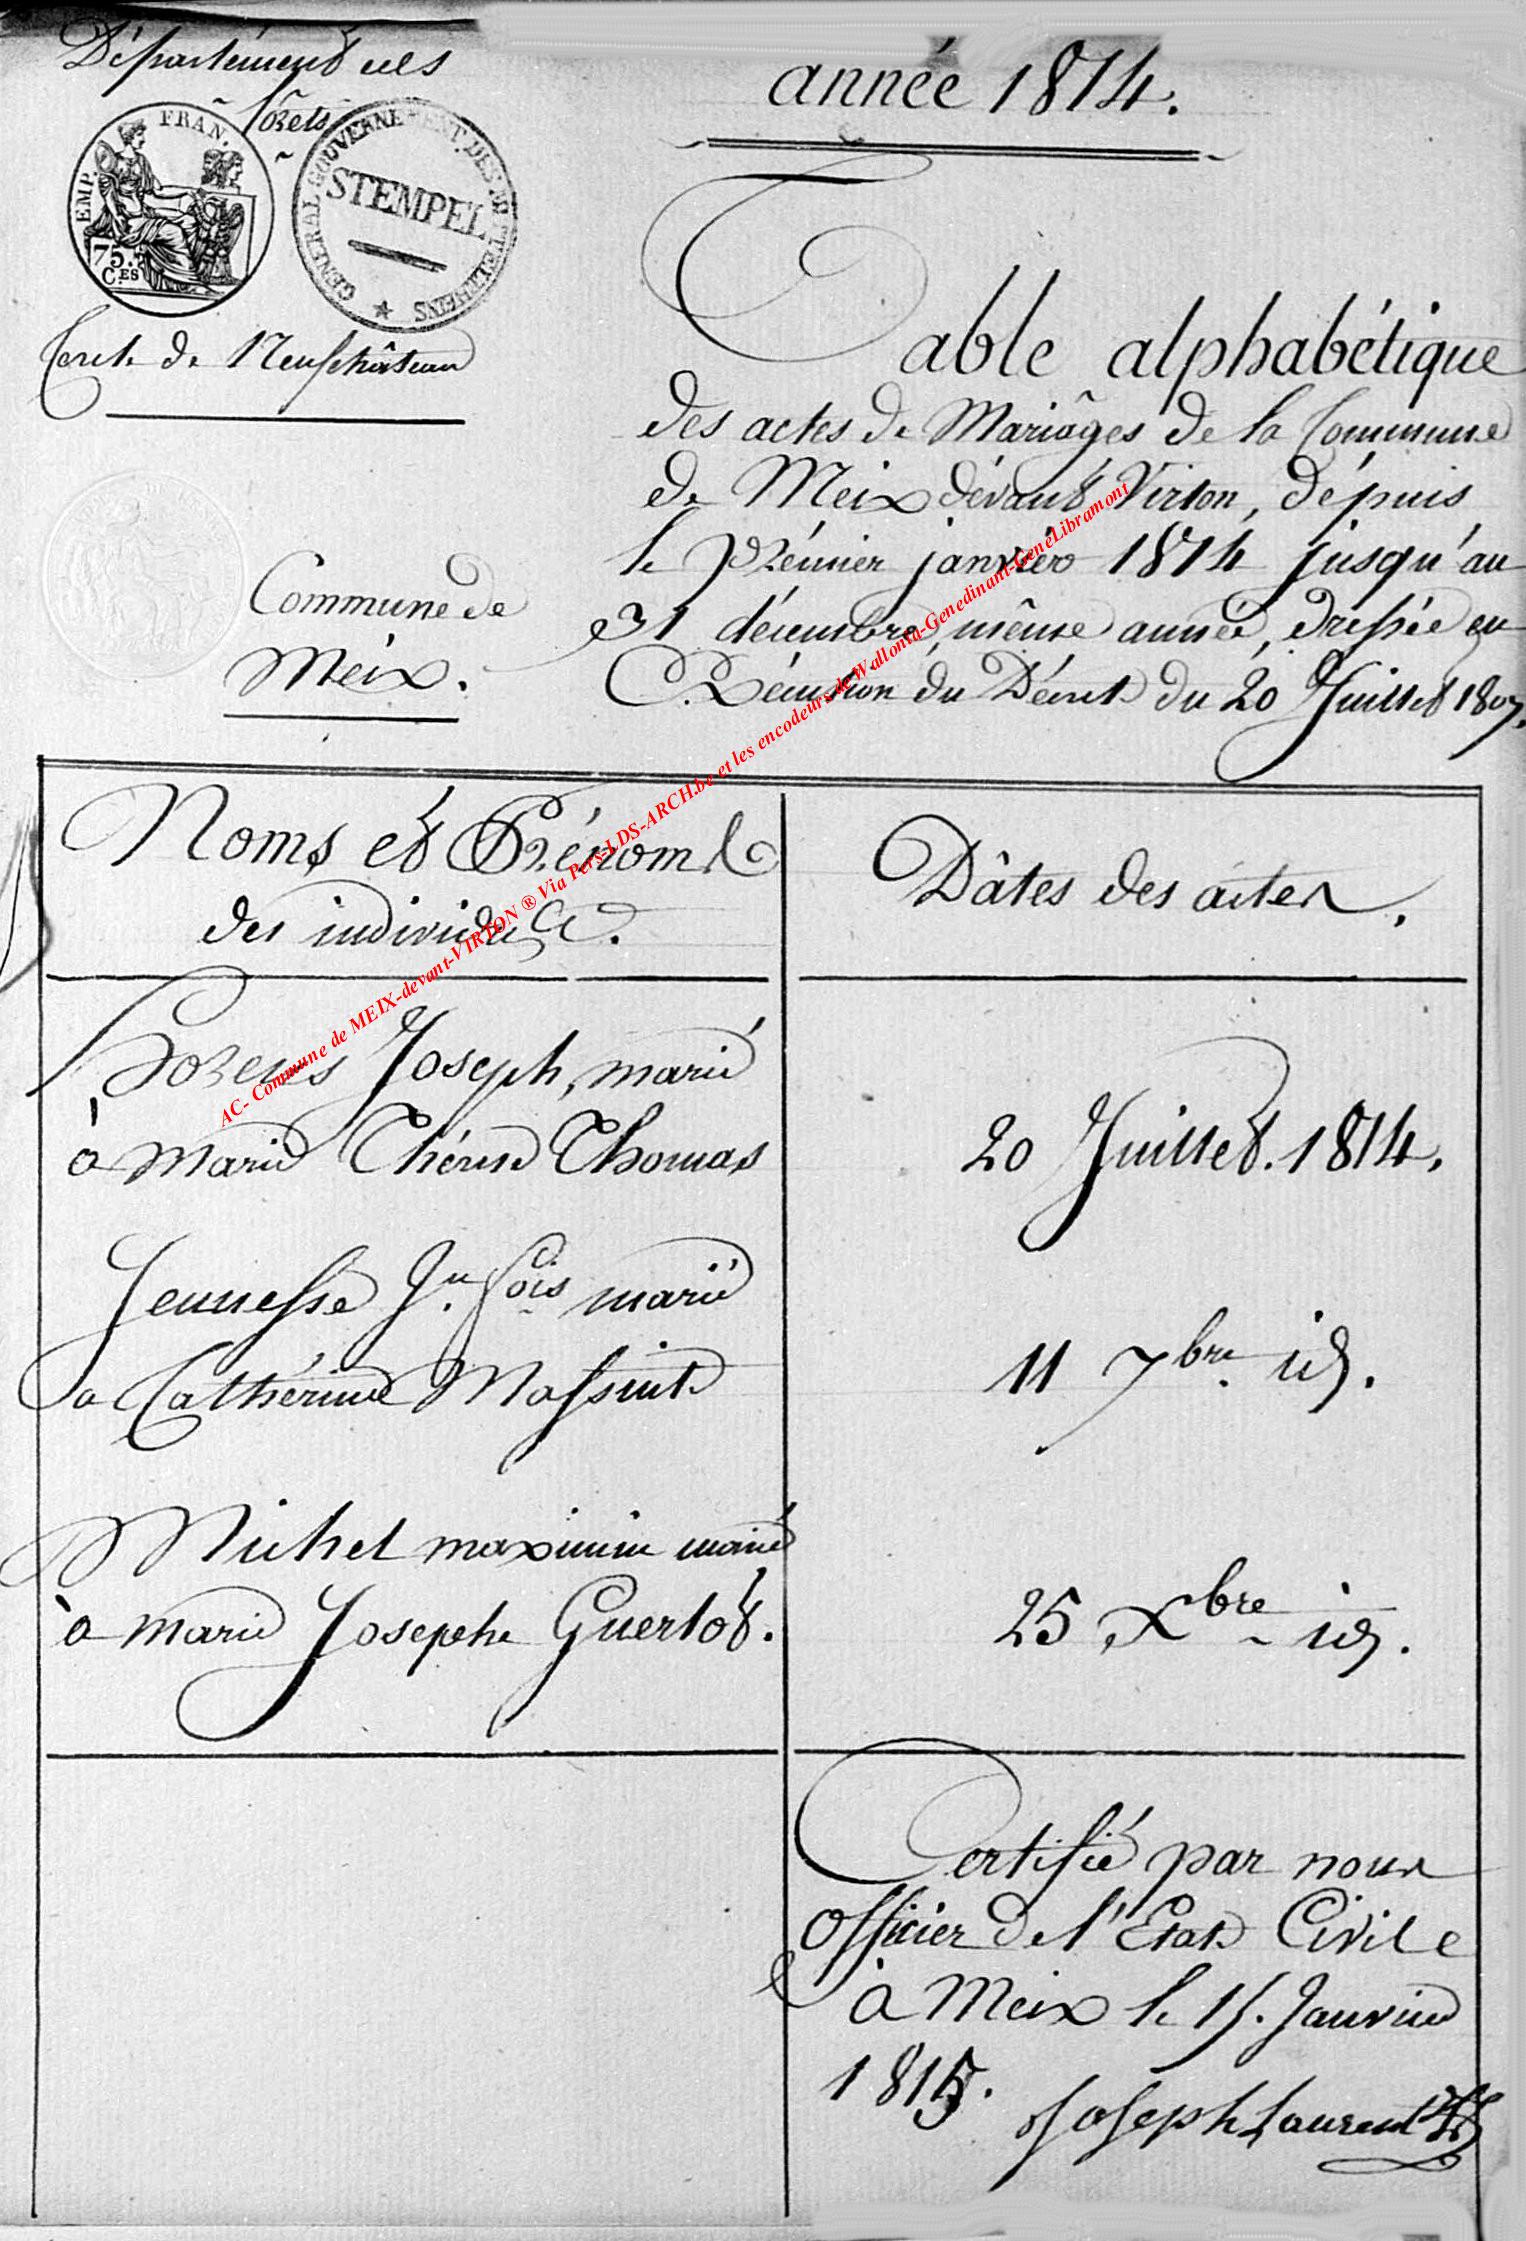 Département des
forêts
EMP. FRAN.
75.
C.ES
GENERAL GOUVERNEMENT. DES MITTELRHEINS
STEMPEL
Cercle de Neufchâteau
Commune de
Meix.
année 1814.
Table alphabétique
des actes de Mariâges de la Commune
de Meix dévant Virton, dépuis
le prémier janvier 1814 jusqu'au
31 décembre, même année, dressée en
Exécution du Décret du 20 Juillet 1807.
Noms et Prénoms
des individus.
Dâtes des actes.
Joseph, marié
à marie Thérèse Thomas
20 Juillet. 1814.
Jeunesse Jn. fois marié
a Cathérine Massinte
11 7bre. id.
Michel maximin marié
à marie Josephe Guerlot.
25 Xbre id.
Certifié par nous
officier de l'Etat Civile
à Meix le 15. Janvier
1815.
Joseph Laurent
AC- Commune de MEIX-devant-VIRTON ® Via Pers-LDS-ARCH.be et les encodeurs de Wallonia-Genedinant-GeneLibramont